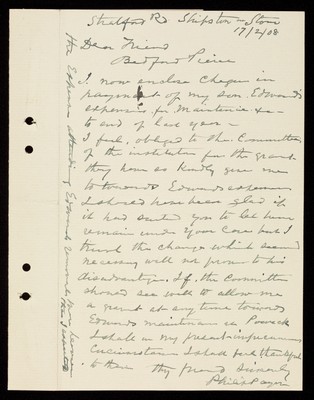 Stratford Rd Shipston-on-Stour
17/2/08
Dear Friend
Bedford Pierce
I now enclose Cheque in
payment of my son Edward's
expenses for Maintenance &c
to end of last year –
I feel obliged to the Committee
of the institution for the grant
they have so kindly given me
towards Edwards expenses
I should have been glad if
it had suited you to let him
remain under your Care but I
trust the change which seemed
necessary will not prove to his
disadvantage. If the Committee
should see well to allow me
a grant at any time towards
Edwards maintenance in Powick
I shall in my present
Circumstances I shall feel thankful
to them thy friend sincerely
Philip Payne
The Expenses attending Edwards removal